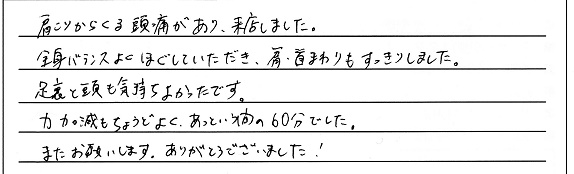 肩こりからくる頭痛があり、来店しました。
全身バランスよくほぐしていただき、肩・首まわりもすっきりしました。
足裏と頭も気持ちよかったです。
力加減もちょうどよく、あっという間の60分でした。
またお願いします。ありがとうございました!